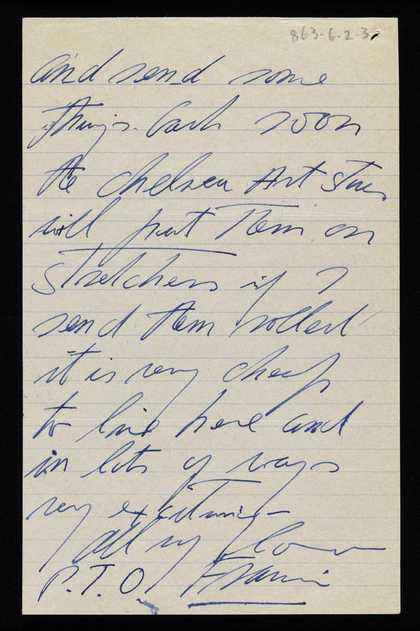 863-6-2-3
and send some
things back soon
the Chelsea Art Store
will put them on
stretchers if I
send them rolled
it is very cheap
to live here and
in lots of ways
very exciting –
all my love
P.T.O. Francis